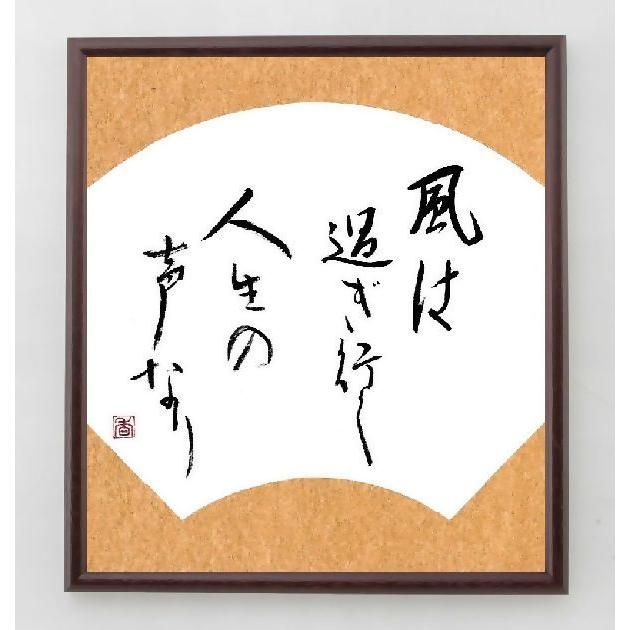 風は
過ぎ行く
人生の
声なり